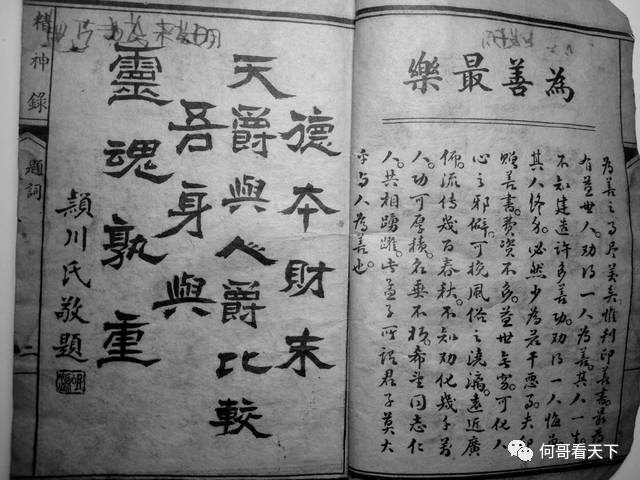 為善最樂
為善之事尽美矣惟刊印善書最為
有益世人。勸得一人為善。其人一生
不知建造許多善功。勸得一人悔惡
其人終身。必然少為若干惡事。夫印
贈善書。費資不多。益世無窮。可化人
心之邪僻。可挽風俗之澆漓。遠近廣
佈。流传幾百春秋。不知劝化幾千萬
人。功可厚積。名垂不朽。希望同志仁
人。共相踴躍。此孟子所謂君子莫大
乎与人為善也。
德本財末
天爵與人爵比較
吾身與
靈魂孰重
潁川氏敬題
精神錄
題詞
二
何哥看天下